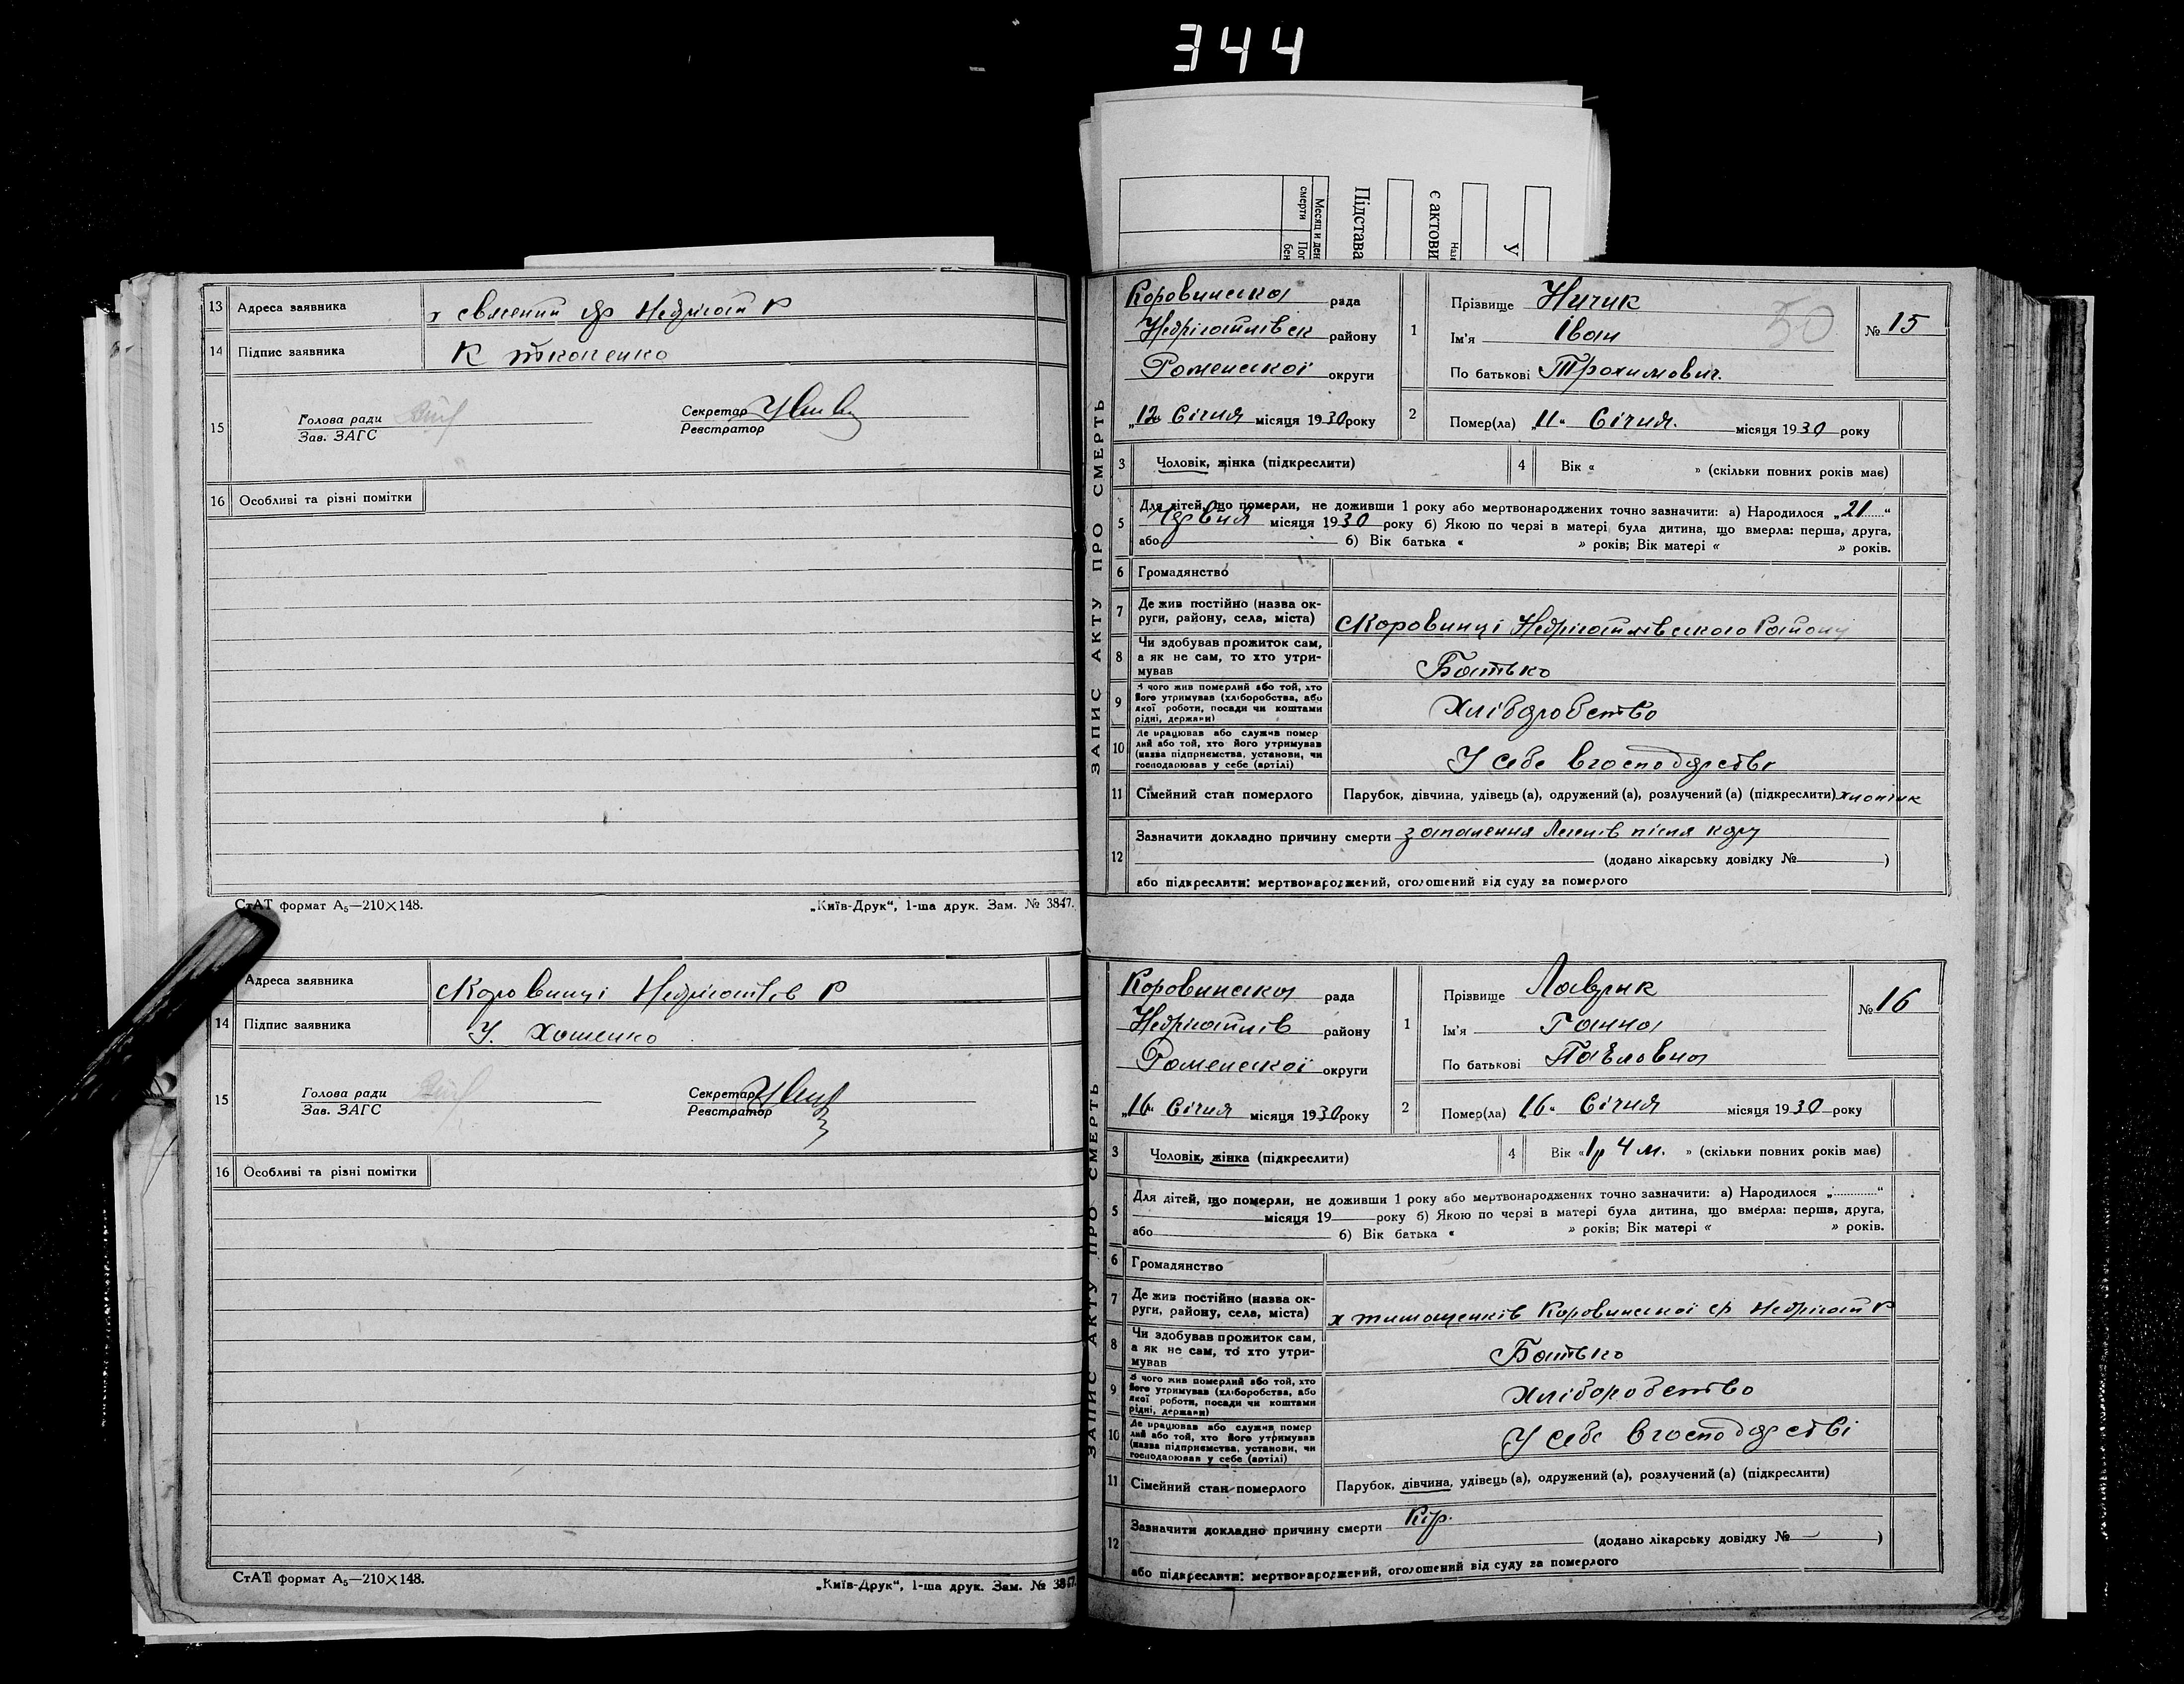 344
Месяц и ден
смерти
Підстава
є актови
У
13 Адреса заявника х свлений ср Недригай Р
14 Підпис заявника К ткаченко
15 Голова ради Секретар
Зав. ЗАГС Реєстратор
16 Особливі та різні помітки
СтАТ формат А₅—210×148. „Київ-Друк“, 1-ша друк. Зам. № 3847.
Адреса заявника с Коровинці Недригайлів Р
14 Підпис заявника У. Хоменко
15 Голова ради Секретар
Зав. ЗАГС Реєстратор
16 Особливі та різні помітки
СтАТ формат А₅—210×148. „Київ-Друк“, 1-ша друк. Зам. № 3847.
ЗАПИС АКТУ ПРО СМЕРТЬ
Коровинська рада
Недрігайлівськ району
Роменської округи
„12“ Січня місяця 1930 року
1 Прізвище Ничик
Ім'я Іван
По батькові Трохимович.
50
№ 15
2 Помер(ла) „11“ Січня. місяця 1930 року
3 Чоловік, жінка (підкреслити) 4 Вік « » (скільки повних років має)
5 Для дітей, що померли, не доживши 1 року або мертвонароджених точно зазначити: а) Народилося „21“
Червня місяця 1930 року б) Якою по черзі в матері була дитина, що вмерла: перша, друга,
або б) Вік батька « » років; Вік матері « » років.
6 Громадянство
7 Де жив постійно (назва округи, району, села, міста) с Коровинці Недрігайлівського Району
8 Чи здобував прожиток сам, а як не сам, то хто утримував Батько
9 З чого жив померлий або той, хто його утримував (хліборобства, або якої роботи, посади чи коштами рідні, держави) Хліборобство
10 Де працював або служив померлий або той, хто його утримував (назва підприємства, установи, чи господарював у себе (артілі) У себе в господарстві
11 Сімейний стан померлого Парубок, дівчина, удівець (а), одружений (а), розлучений (а) (підкреслити) хлопчик
12 Зазначити докладно причину смерти запалення Легенів після кору
(додано лікарську довідку № )
або підкреслити: мертвонароджений, оголошений від суду за померлого
ЗАПИС АКТУ ПРО СМЕРТЬ
Коровинська рада
Недрігайлів району
Роменської округи
„16“ Січня місяця 1930 року
1 Прізвище Лаврик
Ім'я Ганна
По батькові Павловна
№ 16
2 Помер(ла) 16“ Січня місяця 1930 року
3 Чоловік, жінка (підкреслити) 4 Вік «1р 4 м. » (скільки повних років має)
5 Для дітей, що померли, не доживши 1 року або мертвонароджених точно зазначити: а) Народилося „ “
місяця 19 року б) Якою по черзі в матері була дитина, що вмерла: перша, друга,
або б) Вік батька « » років; Вік матері « » років.
6 Громадянство
7 Де жив постійно (назва округи, району, села, міста) х тимощенків Коровинської ср Недрігай Р
8 Чи здобував прожиток сам, а як не сам, то хто утримував Батько
9 З чого жив померлий або той, хто його утримував (хліборобства, або якої роботи, посади чи коштами рідні, держави) хліборобство
10 Де працював або служив померлий або той, хто його утримував (назва підприємства, установи, чи господарював у себе (артілі) У себе в господарстві
11 Сімейний стан померлого Парубок, дівчина, удівець (а), одружений (а), розлучений (а) (підкреслити)
12 Зазначити докладно причину смерти Кір.
(додано лікарську довідку № )
або підкреслити: мертвонароджений, оголошений від суду за померлого